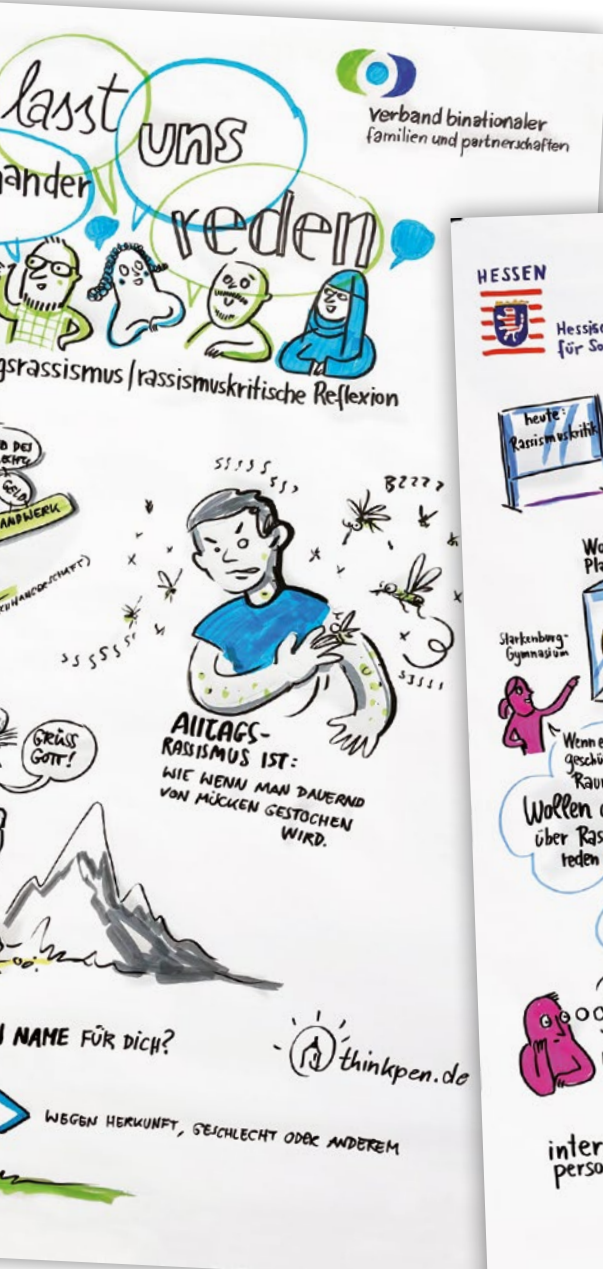 lasst
uns
reden
verband binationaler
familien und partnerschaften
gsrassismus / rassismuskritische Reflexion
GELD
ANDWERK
SSSSS
SSS,
BZZZZ
SSSSSS
SSSSS
GRÜSS
GOTT!
AllTAGS-
RASSISMUS IST:
WIE WENN MAN DAUERND
VON MÜCKEN GESTOCHEN
WIRD.
NAME FÜR DICH?
thinkpen.de
WEGEN HERKUNFT, GESCHLECHT ODER ANDEREM
HESSEN
Hessisc
für So
heute:
Rassismuskritik
Wo
Pla
Starkenburg-
Gymnasium
Wenn e
geschü
Raum
Wollen
über Ras
reden
inter
perso